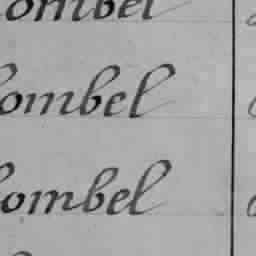 ombel
ombel
ombel